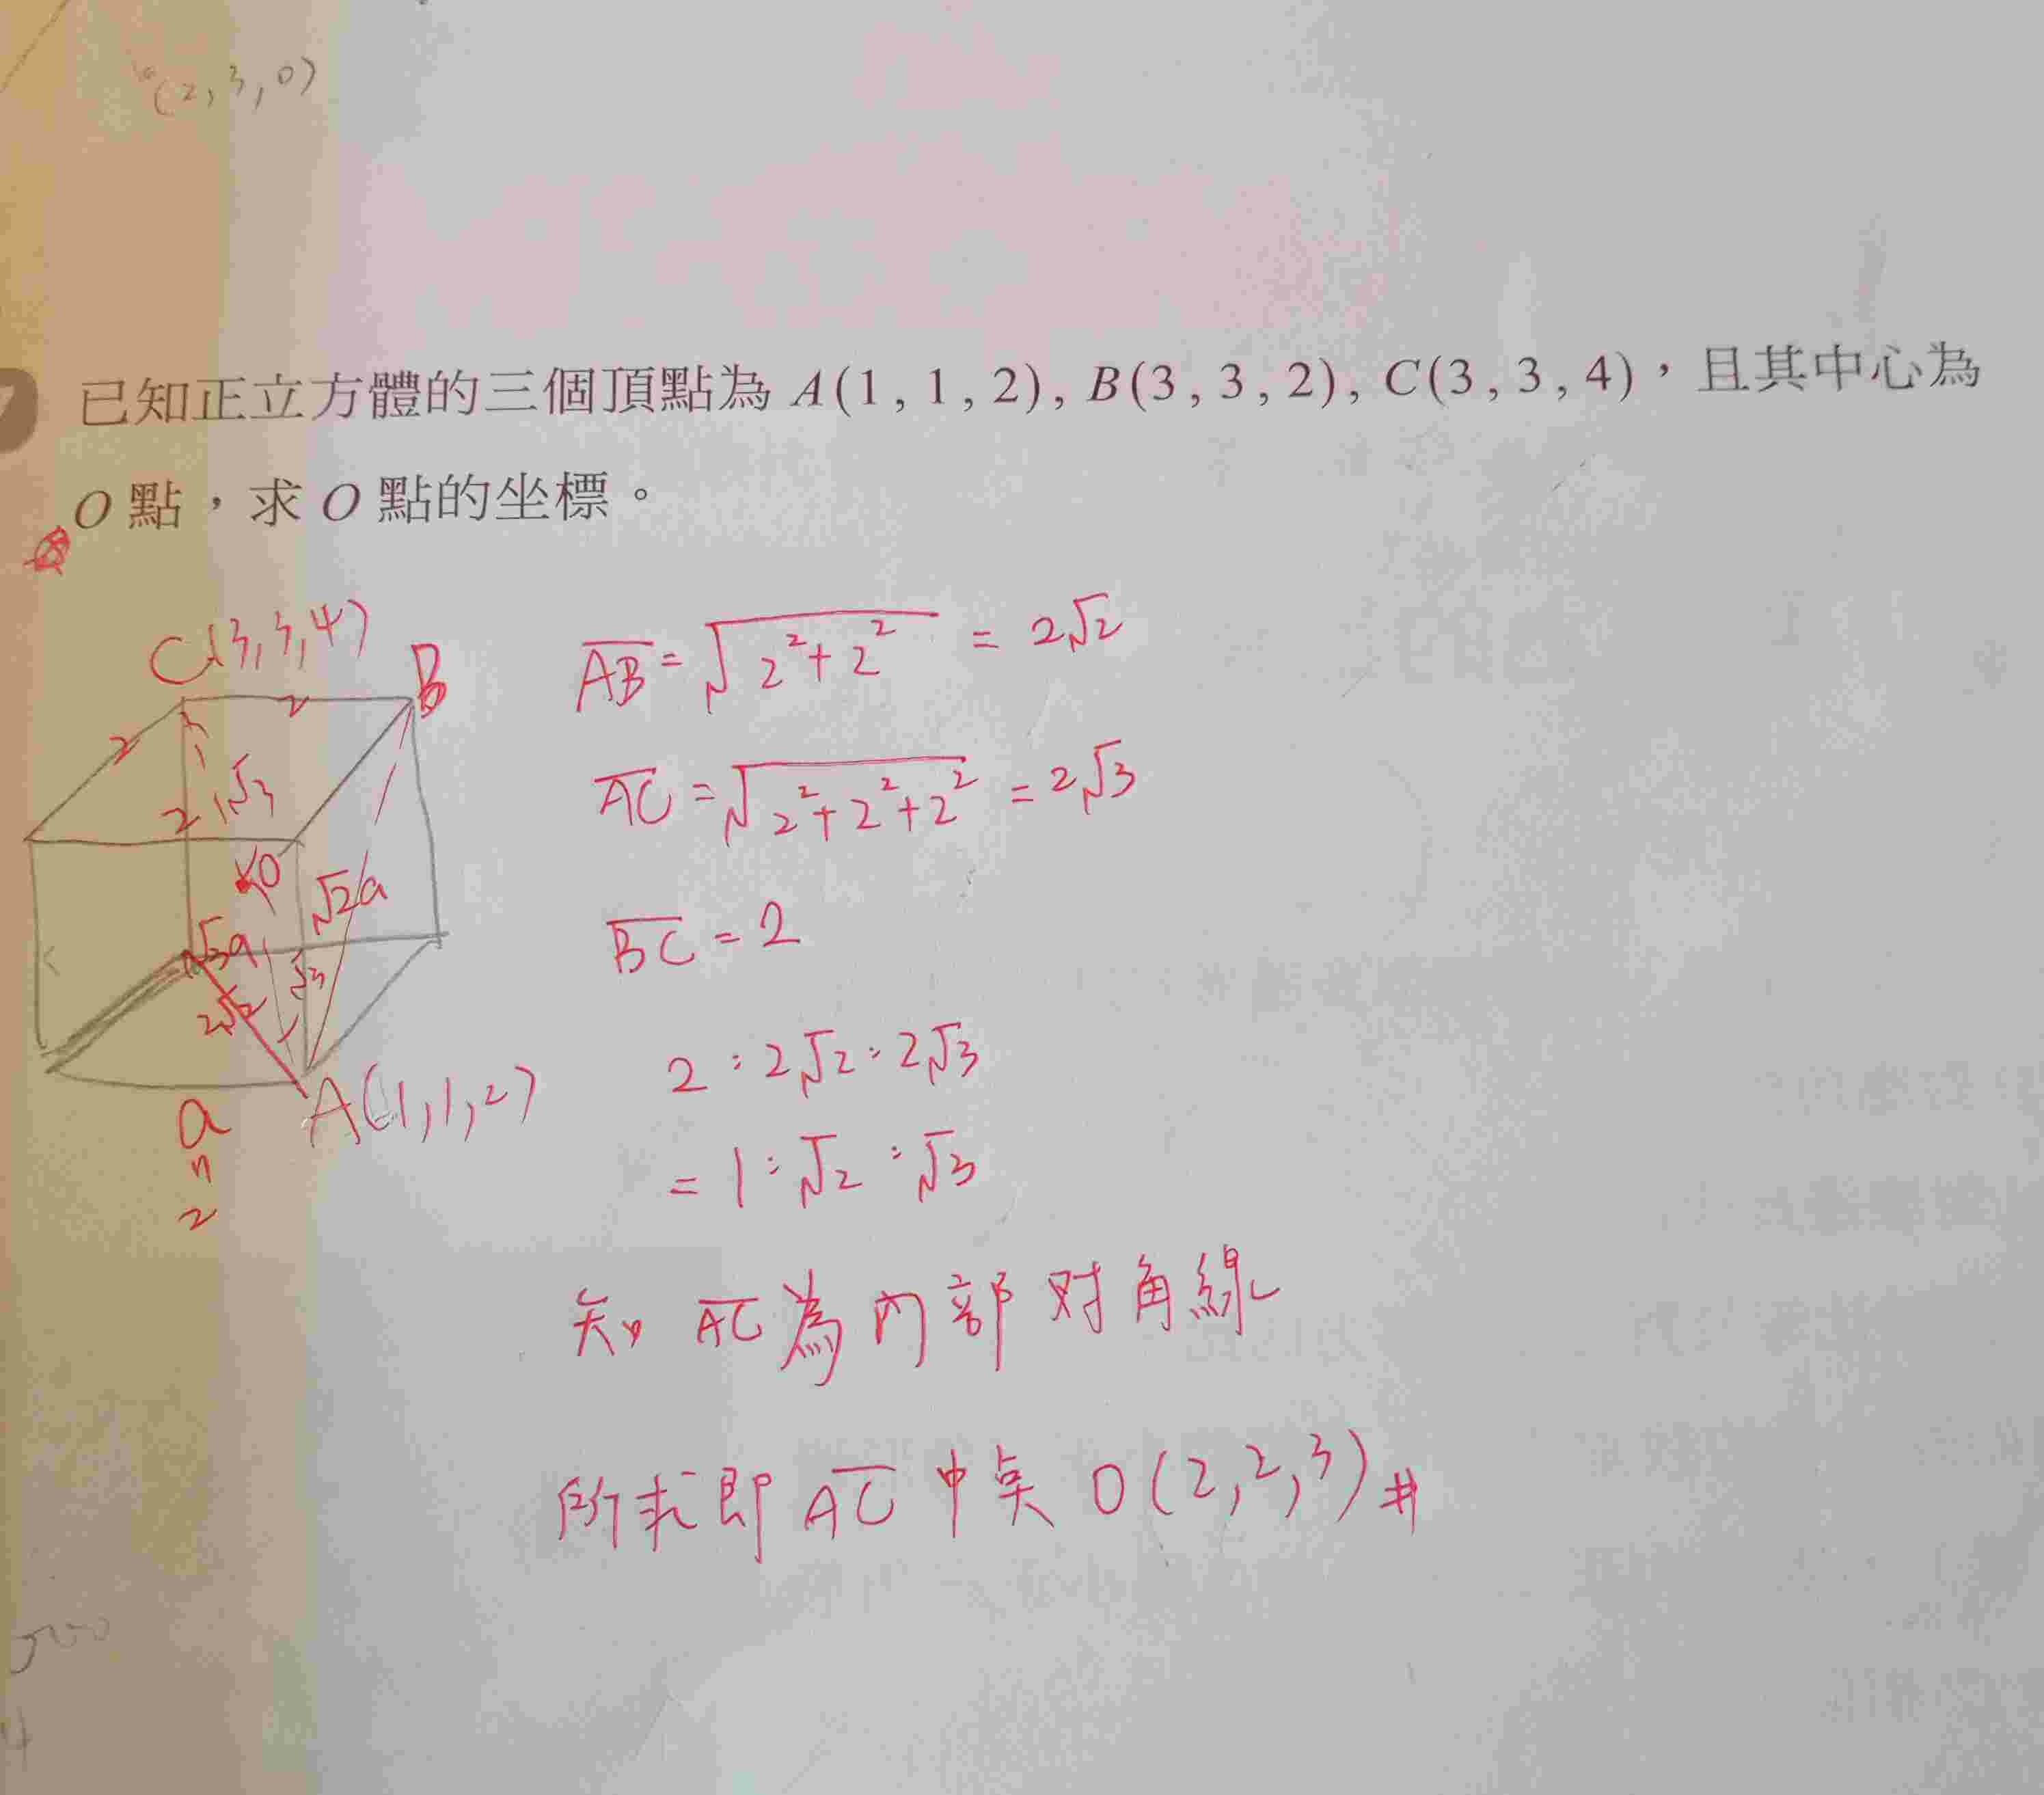 (2,3,0)
已知正立方體的三個頂點為 A(1,1,2), B(3,3,2), C(3,3,4),且其中心為
O 點,求 O 點的坐標。
C(3,3,4)
B
2
2
2
√3
O
√2a
√3a
√3
2√2
A(1,1,2)
a
=
2
AB = √(2²+2²) = 2√2
AC = √(2²+2²+2²) = 2√3
BC = 2
2:2√2:2√3
= 1:√2:√3
知 AC 為內部对角線
所求即 AC 中奌 O(2,2,3)#